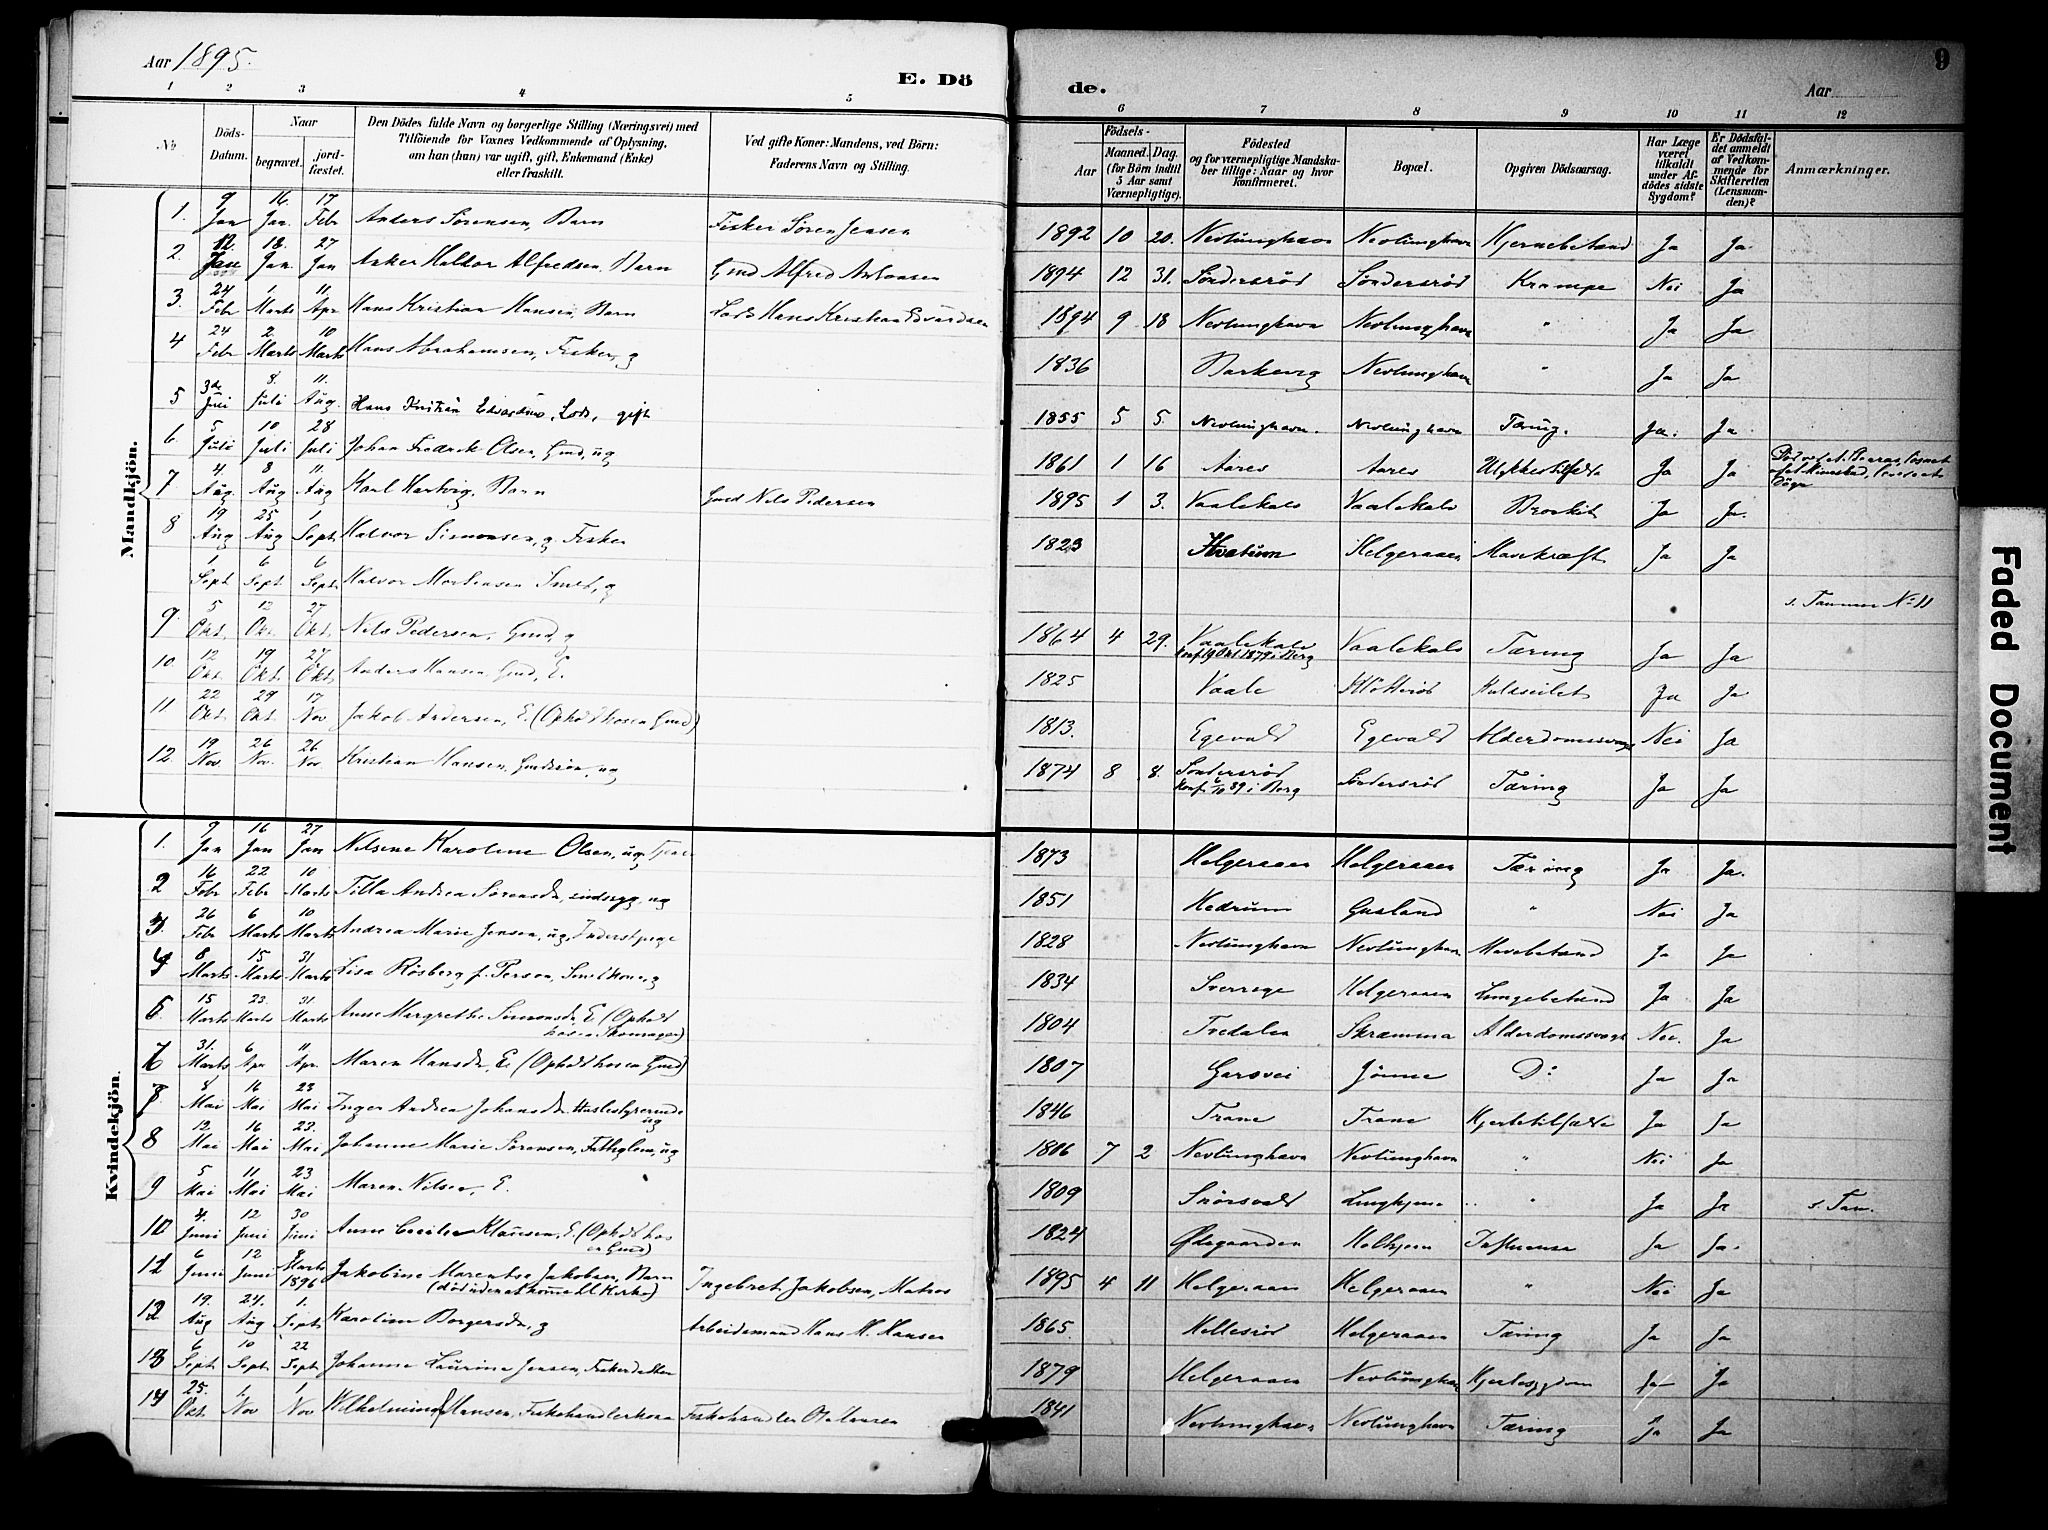 Aar 1895.
E. Dö
de.
Aar
9
1 2 3 4 5 6 7 8 9 10 11 12
No
Döds-Datum.
Naar
begravet.
jord-fæstet.
Den Dödes fulde Navn og borgerlige Stilling (Næringsvei) med
Tilföiende for Voxnes Vedkommende af Oplysning,
om han (hun) var ugift, gift, Enkemand (Enke)
eller fraskilt.
Ved gifte Koner: Mandens, ved Börn:
Faderens Navn og Stilling.
Födsels-
Aar
Maaned. Dag.
(for Börn indtil
5 Aar samt
Værnepligtige).
Födested
og for værnepligtige Mandska-
ber tillige: Naar og hvor
konfirmeret.
Bopæl.
Opgiven Dödsaarsag.
Har Læge
været
tilkaldt
under Af-
dödes sidste
Sygdom?
Er Dödsfal-
det anmeldt
af Vedkom-
mende for
Skifteretten
(Lensman-
den)?
Anmærkninger.
Mandkjön.
1. 9 Jan 16. Jan. 17 Febr Anders Sörensen, Barn Fisker Sören Jensen 1892 10 20. Nevlunghavn Nevlunghavn Hjernebetænd Ja Ja
2. 12. Jan 18. Jan 27 Jan Asker Haldor Alfredsen, Barn Gmd Alfred Antonsen 1894 12 31. Söndersröd Söndersröd Krampe Nei Ja
3. 24 Febr 1 Marts 11. Apr Hans Kristian Hansen, Barn Lods Hans Kristian Edvardsen 1894 9 18 Nevlunghavn Nevlunghavn " Ja Ja
4 24 Febr 2. Marts 10 Marts Hans Abrahamsen, Fisker, g 1836 Barkevig Nevlunghavn " Ja Ja
5 3de Juli 8. Juli 11. Aug. Hans Kristian Edvardsen, Lods, gift 1855 5 5. Nevlunghavn. Nevlunghavn Tæring. Ja. Ja
6. 5 Juli 10 Juli 28 Juli Johan Fredrik Olsen, Gmd, ug 1861 1 16 Aares Aares Ulykkestilfælde Ja Ja
7 4. Aug. 8 Aug 11. Aug Karl Hartvig, Barn Gmd Nils Pedersen 1895 1 3. Vaalekals Vaalekals Bronkit Ja Ja.
8 19 Aug 25 Aug 1 Sept. Halvor Simonsen, g, Fisker 1823 Hvatum Helgeraaen Mavekræft Ja Ja
1 Sept 6 Sept 6 Sept Halvor Mortensen Smed, g s. Tanum No 11
9. 5 Okt. 12 Okt. 27 Okt. Nils Pedersen, Gmd, g 1864 4 29. Vaalekals Vaalekals Tæring Ja Ja
Konf 19 Okt. 1879 i Berg
10. 12 Okt. 19 Okt. 27 Okt. Anders Hansen, Gmd, E. 1825 Vaale Ja Ja
11 22 Okt. 29 Okt. 17 Nov Jakob Andersen, E. (Ophold hos en Gmd) 1813. Egevald Egevald Alderdomssvaghed Nei Ja
12. 19 Nov. 26 Nov. 26 Nov Kristian Hansen, Gmdssön, ug 1874 8 8. Söndersröd Söndersröd Tæring Ja Ja
Konf 6/10 89 i Berg
Kvindekjön.
1. 9 Jan 16 Jan 27 Jan Nilsine Karoline Olsen, ug, 1873 Helgeraaen Helgeraaen Tæring Ja Ja.
2 16 Febr 22 Febr 10 Marts Tilla Andrea Sörensdr, sindssyg, ug 1851 Hedrum Gusland " Nei Ja
3 26 Febr 6 Marts 10 Marts Andrea Marie Jensen, ug, Inderstpige 1828 Nevlunghavn Nevlunghavn Mavebetænd Ja Ja
4 8 Marts 15 Marts 31 Marts Lisa Rösberg f. Person, Smedkone, g 1834 Sverrige Helgeraaen Lungebetænd Ja Ja
5 15 Marts 23. Marts 31. Marts Anne Margrethe Simonsdr, E (Ophold 1804 Tvedalen Skramma Alderdomssvagh Nei. Ja
hos en Skomager)
6 31. Marts 6 Apr 11 Apr. Maren Hansdr, E. (Ophold hos en Gmd) 1807 Garsvei Jönne Do Ja Ja
7 8 Mai 16 Mai 23 Mai Inger Andrea Johansdr, Husbestyrerinde 1846 Trane Trane Hjertetilfælde Ja Ja
ug
8 12 Mai 16 Mai 23. Mai Johanne Marie Sörensen, Fattiglem, ug 1806 7 2 Nevlunghavn Nevlunghavn " Nei Ja
9 5 Mai 11 Mai 23 Mai Maren Nilsen, E. 1809 Snörsvald " Ja Ja s. Tan.
10 4. Juni 12 Juni 30 Juni Anne Cecilie Klausen, E. (Ophold hos 1824 Ödegaarden Holhjem Influensa Ja Ja.
en Gmd)
11 6 Juni 12 Juni 8 Marts 1896 Jakobine Marentse Jakobsen, Barn Ingebret Jakobsen, Matros 1895 4 11 Helgeraaen Helgeraaen " Nei Ja
(död uden at komme til Kirke)
12 19. Aug 24. Aug 1. Sept Karoline Borgersdr, g Arbeidsmand Hans M. Hansen 1865. Hellesröd Helgeraaen Tæring Ja Ja
13 6 Sept 10 Sept. 22 Sept. Johanne Laurine Jensen, Fiskerdatter 1879 Helgeraaen Nevlunghavn Hjertesygdom Ja Ja
14 25. Okt. 1. Nov 1 Nov Vilhelmine Hansen, Fiskehandlerkone Fiskehandler Ole Hansen 1841 Nevlunghavn Nevlunghavn Tæring Ja Ja
Faded Document